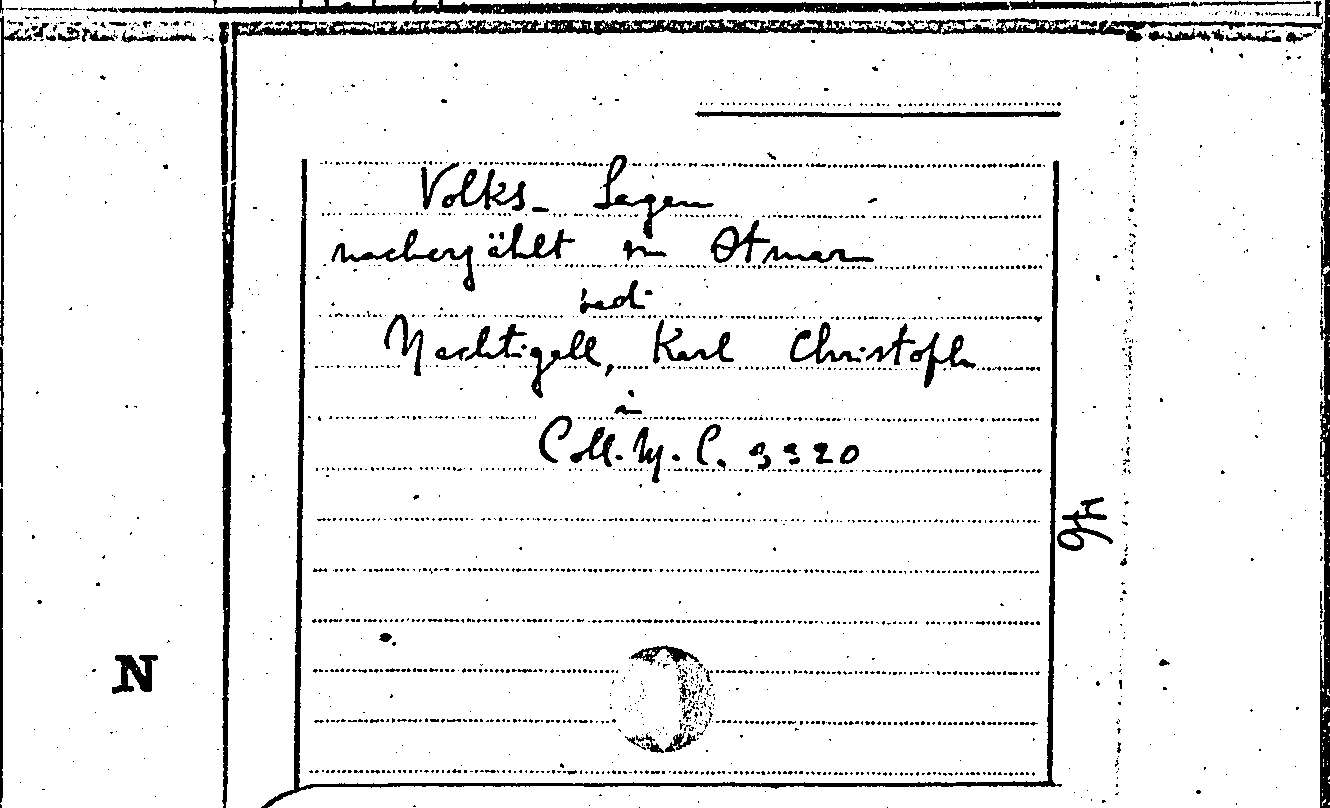 Volks-Sagen
nacherzählt von Otmar
vedi
Nachtigall, Karl Christoph
in
Coll. M. C. 3320
N